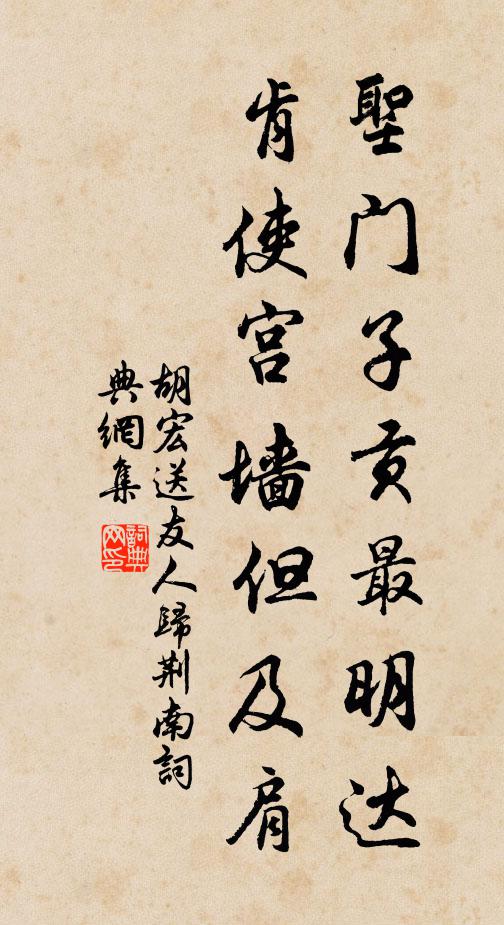 聖门子贡最明达
肯使宫墙但及肩
胡宏送友人歸荆南詞
典網集
詞典
网印